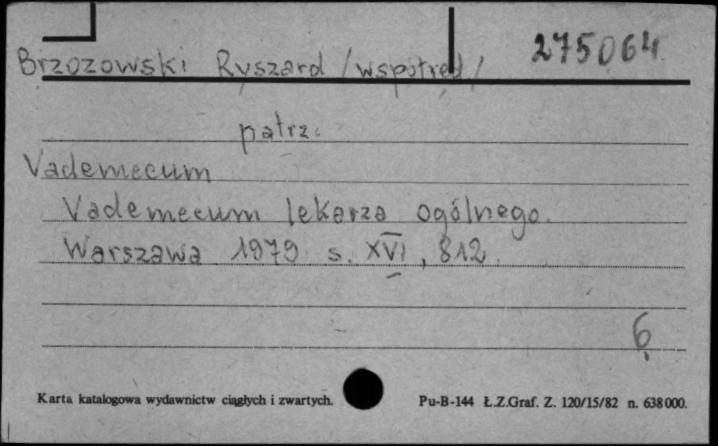 275064
Brzozowski Ryszard /współred/
patrz:
Vademecum
Vademecum lekarza ogólnego.
Warszawa 1979 s. XVI, 812.
6
Karta katalogowa wydawnictw ciągłych i zwartych. Pu-B-144 Ł.Z.Graf. Z. 120/15/82 n. 638000.